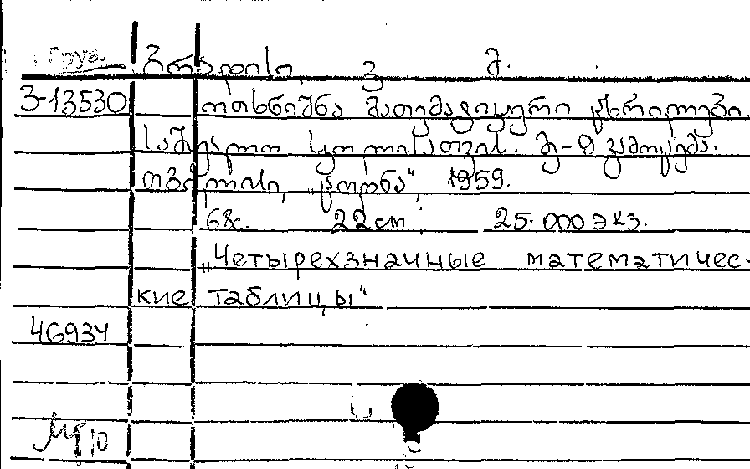 ბრადისი, ვ. მ.
3-13530 ოთხნიშნა მათემატიკური ცხრილები
საშუალო სკოლისათვის. მე-9 გამოცემა.
თბილისი, „ცოდნა“, 1959.
22 cm. 25.000 экз.
„Четырехзначные математичес-
кие таблицы“
46934